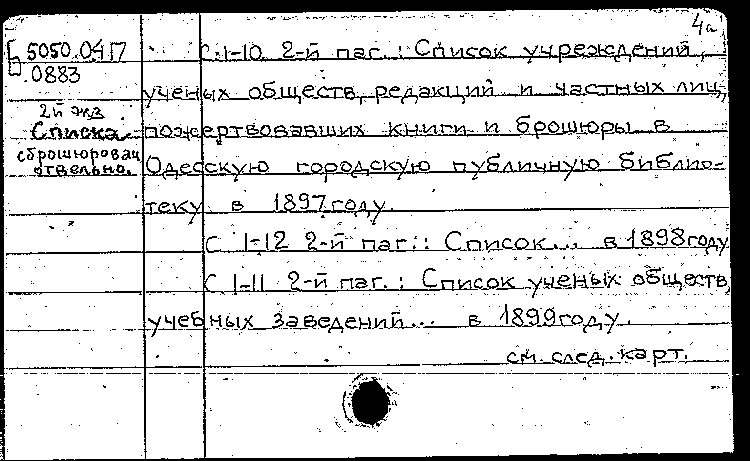 4а
5050.04П
0883
2й экз
Списка
сброшюрован
отдельно.
С.1-10 2-й паг.: Список учреждений,
ученых обществ, редакций и частных лиц,
пожертвовавших книги и брошюры в
Одесскую городскую публичную библио-
теку в 1897 году.
С 1-12 2-й паг.: Список... в 1898 году
С 1-11 2-й паг.: Список ученых обществ,
учебных заведений... в 1899 году.
см. след. карт.